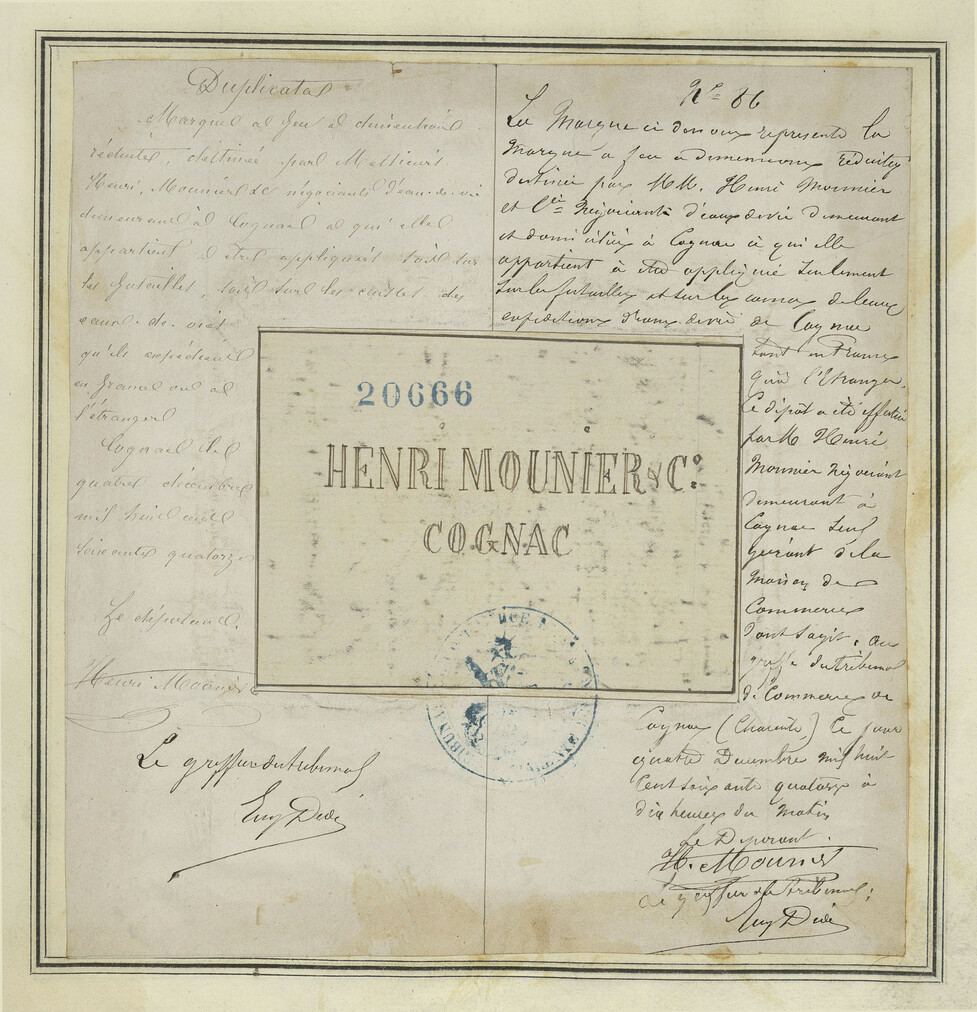 Duplicata
Marque à feu à dimentions
réduites, destinée par Messieurs
Henri Mounier & Cie négociants d'eau-de-vie
demeurant à Cognac à qui elle
appartient à être appliquée soit sur
les futailles, soit sur les caisses des
eaux-de-vie
qu'ils expédient
en France ou à
l'étranger
Cognac le
quatre décembre
mil huit cent
soixante quatorze
Le déposant.
Henri Mounier
Le greffier du tribunal
Eug
No 86
La Marque ci dessous représente la
Marque à feu à dimensions réduites
destinée par MM. Henri Mounier
et Cie Négociants d'eaux de vie demeurant
et domiciliés à Cognac à qui elle
appartient à être appliquée seulement
sur les futailles et sur les caisses de leurs
expéditions d'eaux de vie de Cognac
tant en France
qu'à l'Etranger.
Ce dépôt a été effectué
par M Henri
Mounier Négociant
demeurant à
Cognac seul
gérant de la
Maison de
Commerce
dont s'agit, au
greffe du tribunal
de Commerce de
Cognac (Charente) ce jour
quatre Decembre mil huit
Cent soixante quatorze à
dix heures du Matin
Le Déposant.
H. Mounier
Le greffier du tribunal:
Eug
20666
HENRI MOUNIER & Co.
COGNAC